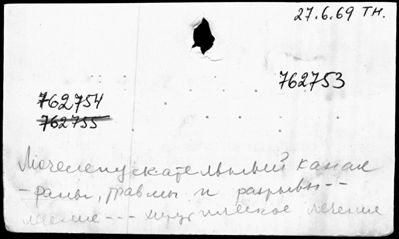 27.6.69 ТН.
762753
762754
762755
Мочеиспускательный канал
- раны, травмы и разрывы --
--- хирургическое лечение